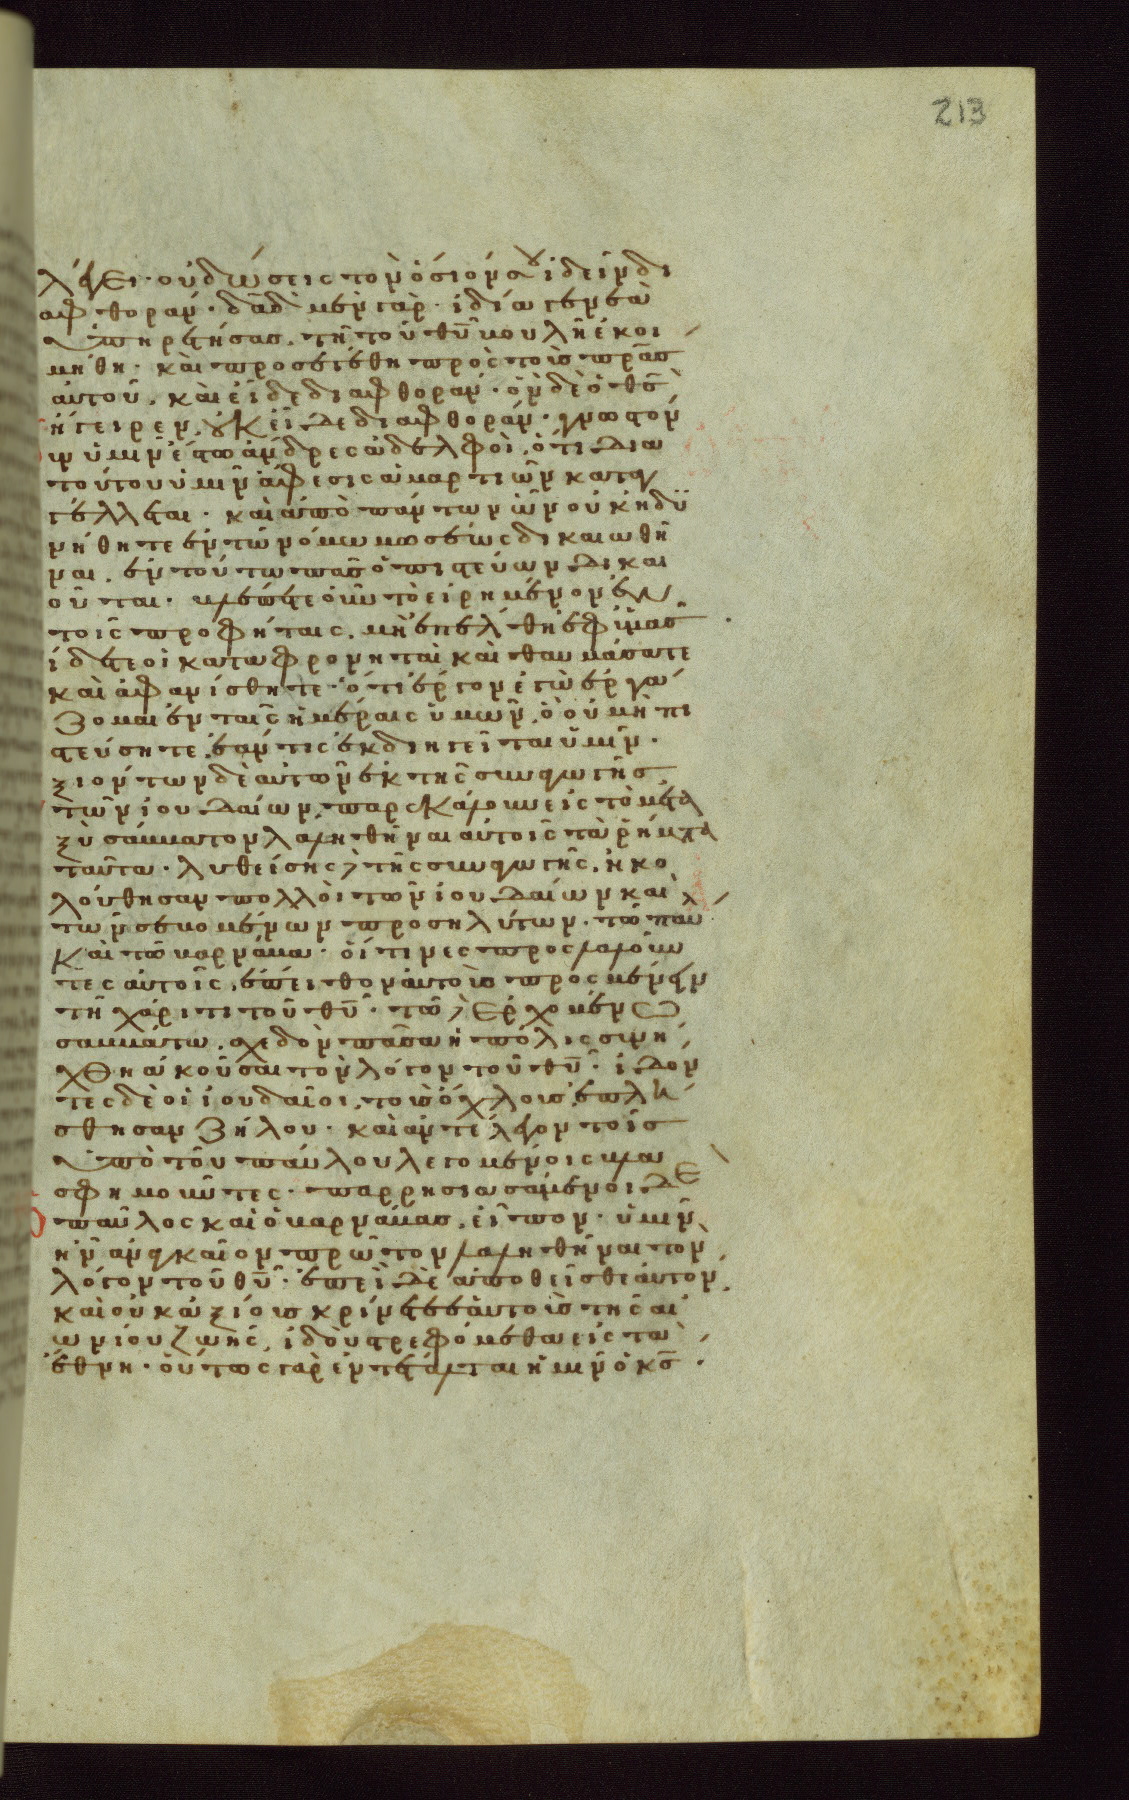 213
λέγει· οὐ δώσεις τὸν ὅσιόν σου ἰδεῖν δι
αφθοράν· δᾱδ μὲν γὰρ· ἰδία γενεᾶ
ὑπηρετήσας, τῆ τοῦ θῡ βουλῆ ἐκοι
μήθη· καὶ προσετέθη πρὸς τοὺς πρ̄ας
αὐτοῦ, καὶ εἶδε διαφθοράν· ὃν δὲ ὁ θς̄
ἤγειρεν, οὐκ εἶδε διαφθοράν· γνωστὸν
ὑμῖν ἔστω ἄνδρες ἀδελφοὶ, ὅτι δια
τούτου ὑμῖν ἄφεσις ἁμαρτιῶν καταγ
γέλλεται· καὶ ἀπὸ πάντων ὧν οὐκ ἠδυ
νήθητε ἐν τῶ νόμω μωσέως δικαιωθῆ
ναι, ἐν τούτω πᾶς ὁ πιστεύων δικαι
οῦται· βλέπετε οὖν τὸ εἰρημένον ἐν
τοῖς προφήταις, μὴ ἐπέλθη ἐφ ὑμᾶς
ἴδετε οἱ καταφρονηταὶ καὶ θαυμάσατε
καὶ ἀφανίσθητε· ὅτι ἔργον ἐγὼ ἐργά
ζομαι ἐν ταῖς ἡμέραις ὑμῶν, ὃ οὐ μὴ πι
στεύσητε, ἐάν τις ἐκδιηγεῖται ὑμῖν·
ξιόντων δὲ αὐτῶν ἐκ τῆς συναγωγῆς
τῶν ἰουδαίων, παρεκάλουν εἰς τὸ μετα
ξὺ σάββατον λαληθῆναι αὐτοῖς τὰ ῥήματα
ταῦτα· λυθείσης δὲ τῆς συναγωγῆς, ἠκο
λούθησαν πολλοὶ τῶν ἰουδαίων καὶ
τῶν σεβομένων προσηλύτων· τῶ παύ
καὶ τῶ βαρνάβα· οἵτινες προσλαλοῦν
τες αὐτοῖς, ἔπειθον αὐτοὺς προσμένειν
τῆ χάριτι τοῦ θῡ· τῶ δὲ ἐρχομένω
σαββάτω, σχεδὸν πᾶσα ἡ πόλις συνή
χθη ἀκοῦσαι τὸν λόγον τοῦ θῡ· ἰδόν
τες δὲ οἱ ἰουδαῖοι, τοὺς ὄχλους, ἐπλή
σθησαν ζήλου· καὶ ἀντέλεγον τοῖς
ὑπὸ τοῦ παύλου λεγομένοις βλα
σφημοῦντες· παρρησιασάμενοι δὲ
παῦλος καὶ ὁ βαρνάβας, εἶπον· ὑμῖν
ἦν ἀναγκαῖον πρῶτον λαληθῆναι τὸν
λόγον τοῦ θῡ· ἐπεὶ δὲ ἀπωθεῖσθε αὐτὸν
καὶ οὐκ ἀξίους κρίνετε ἑαυτοὺς τῆς αἰ
ωνίου ζωῆς, ἰδοὺ στρεφόμεθα εἰς τὰ
ἔθνη· οὕτως γὰρ ἐντέταλται ἡμῖν ὁ κς̄·